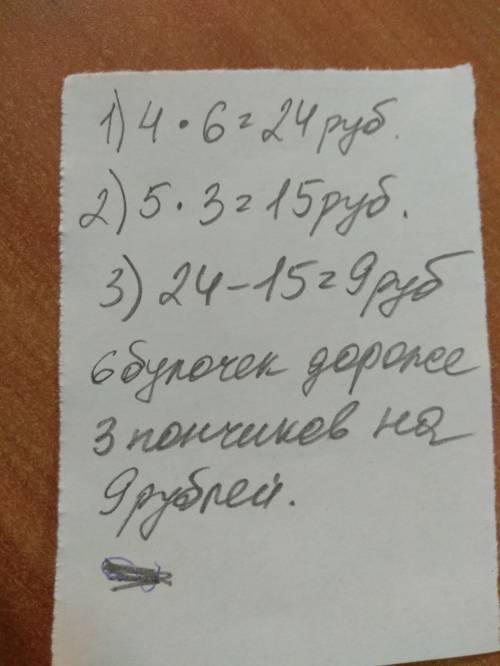 1) 4 · 6 = 24 руб.
2) 5 · 3 = 15 руб.
3) 24 - 15 = 9 руб
6 булочек дороже
3 пончиков на
9 рублей.